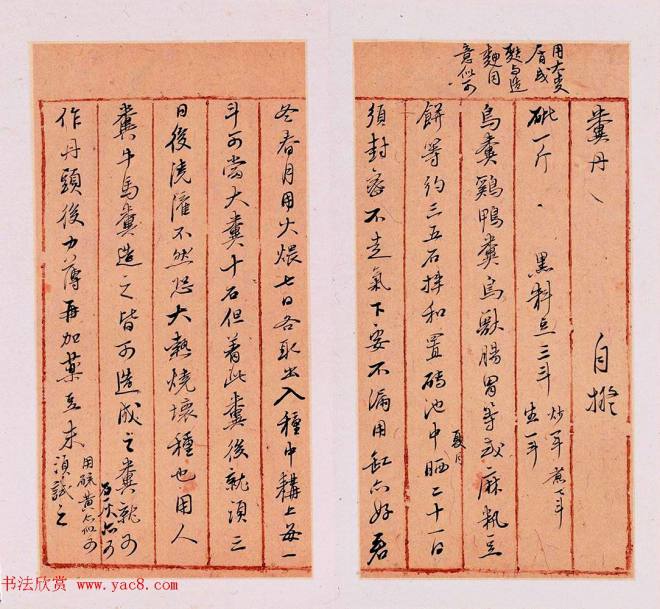 用大麦
屑或
麩与造
麯同
意似可
糞丹、 自擬
砒一斤、 黑料豆三斗 炒一斗煮一斗
生一斗
鳥糞鷄鴨糞鳥獸腸胃等或麻籸豆
餅等約三五石拌和置磚池中晒二十一日
夏月
須封密不走氣下要不漏用缸亦好若
冬春月用火煨七日各取出入種中耩上每一
斗可當大糞十石但着此糞後就須三
日後澆灌不然恐大熱燒壞種也用人
糞牛馬糞造之皆可造成之糞就可
作丹頭後力薄再加藥豆末須試之
用硫黃亦似可
石灰亦可
书法欣赏 www.yac8.com